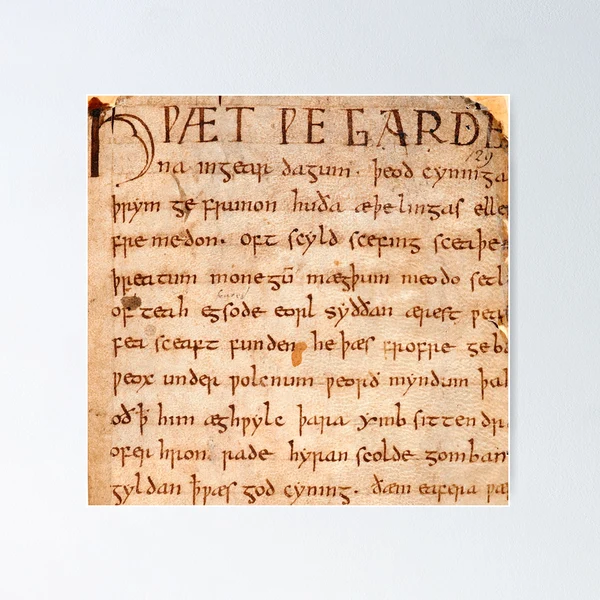 HǷÆT ǷE GARDE
129
na ingear dagum. þeod cyninga
þrym ge frunon huða æþelingas elle
fremedon. oft scyld scefing sceaþe
þreatum monegū mægþum meodo setl
of teah egsode eorl syððan ærest ƿear
fea sceaft funden he þæs frofre geba
ƿeox under ƿolcnum ƿeorð myndum þah
oð ꝥ him æghƿylc þara ymb sittendr
ofer hron rade hyran scolde gomban
gyldan ꝥ ƿæs god cyning. ðæm eafera ƿæ